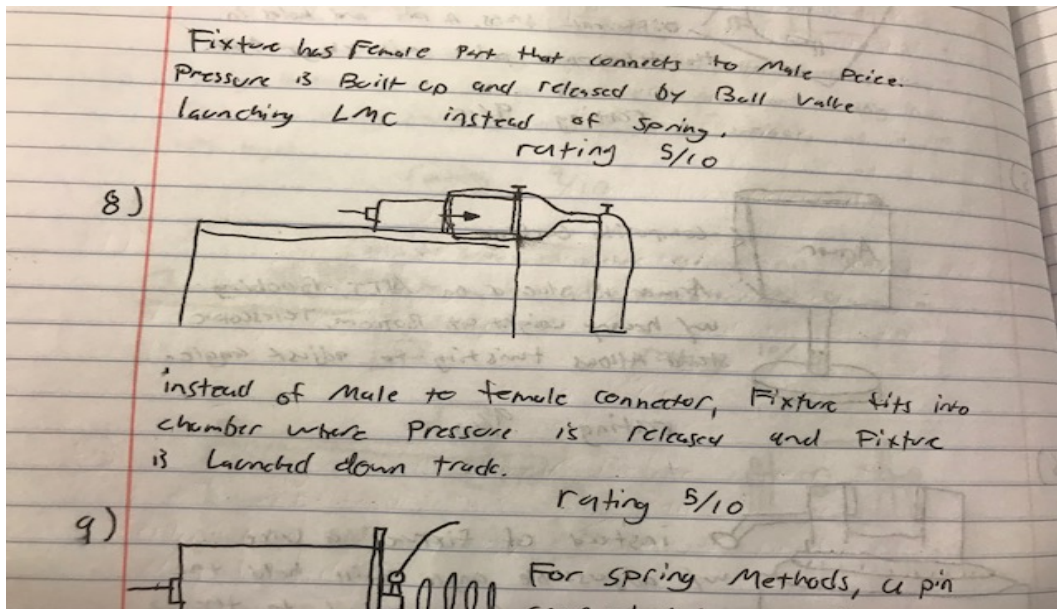 Fixture has Female Part that connects to Male Peice.
Pressure is Built up and released by Ball Valve
launching LMC instead of spring.
rating 5/10
8)
instead of Male to female connector, Fixture fits into
chamber where Pressure is released and Fixture
is Launched down track.
rating 5/10
9)
For spring Methods, a pin